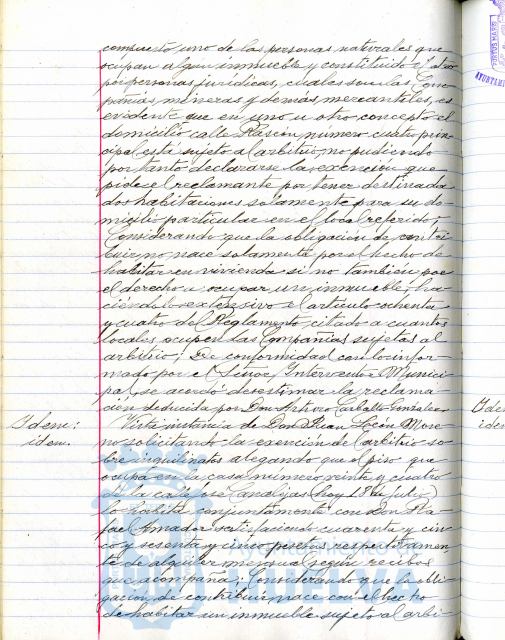 compuesto, uno de las personas naturales que
ocupan algún inmueble y constituido el otro
por personas jurídicas, cuales son las Com-
pañías mineras y demás mercantiles, es
evidente que en uno u otro concepto el
domicilio calle Rascón número cuatro prin-
cipal está sujeto al arbitrio, no pudiendo
por tanto declararse la exención que
pide el reclamante por tener destinada
dos habitaciones solamente para su do-
micilio particular en el local referido;
Considerando que la obligación de contri-
buir no nace solamente por el hecho de
habitar en vivienda si no también por
el derecho a ocupar un inmueble, ha-
ciéndolo extensivo el artículo ochenta
y cuatro del Reglamento citado a cuantos
locales ocupen las Compañías sujetas al
arbitrio; De conformidad con lo infor-
mado por el Señor Interventor Munici-
pal, se acordó desestimar la reclama-
ción deducida por Don Arturo Carballo González.
Idem:
idem.
Vista instancia de Don Juan León More-
no solicitando la exención de arbitrio so-
bre inquilinatos alegando que el piso que
ocupa en la casa número veinte y cuatro
de la calle José Canalejas (hoy 18 de Julio)
lo habita conjuntamente con Don Ra-
fael Amador satisfaciendo cuarenta y cin-
co y sesenta y cinco pesetas respectivamen-
te de alquiler mensual según recibos
que acompaña; Considerando que la obli-
gación de contribuir nace con el hecho
de habitar un inmueble sujeto al arbi-